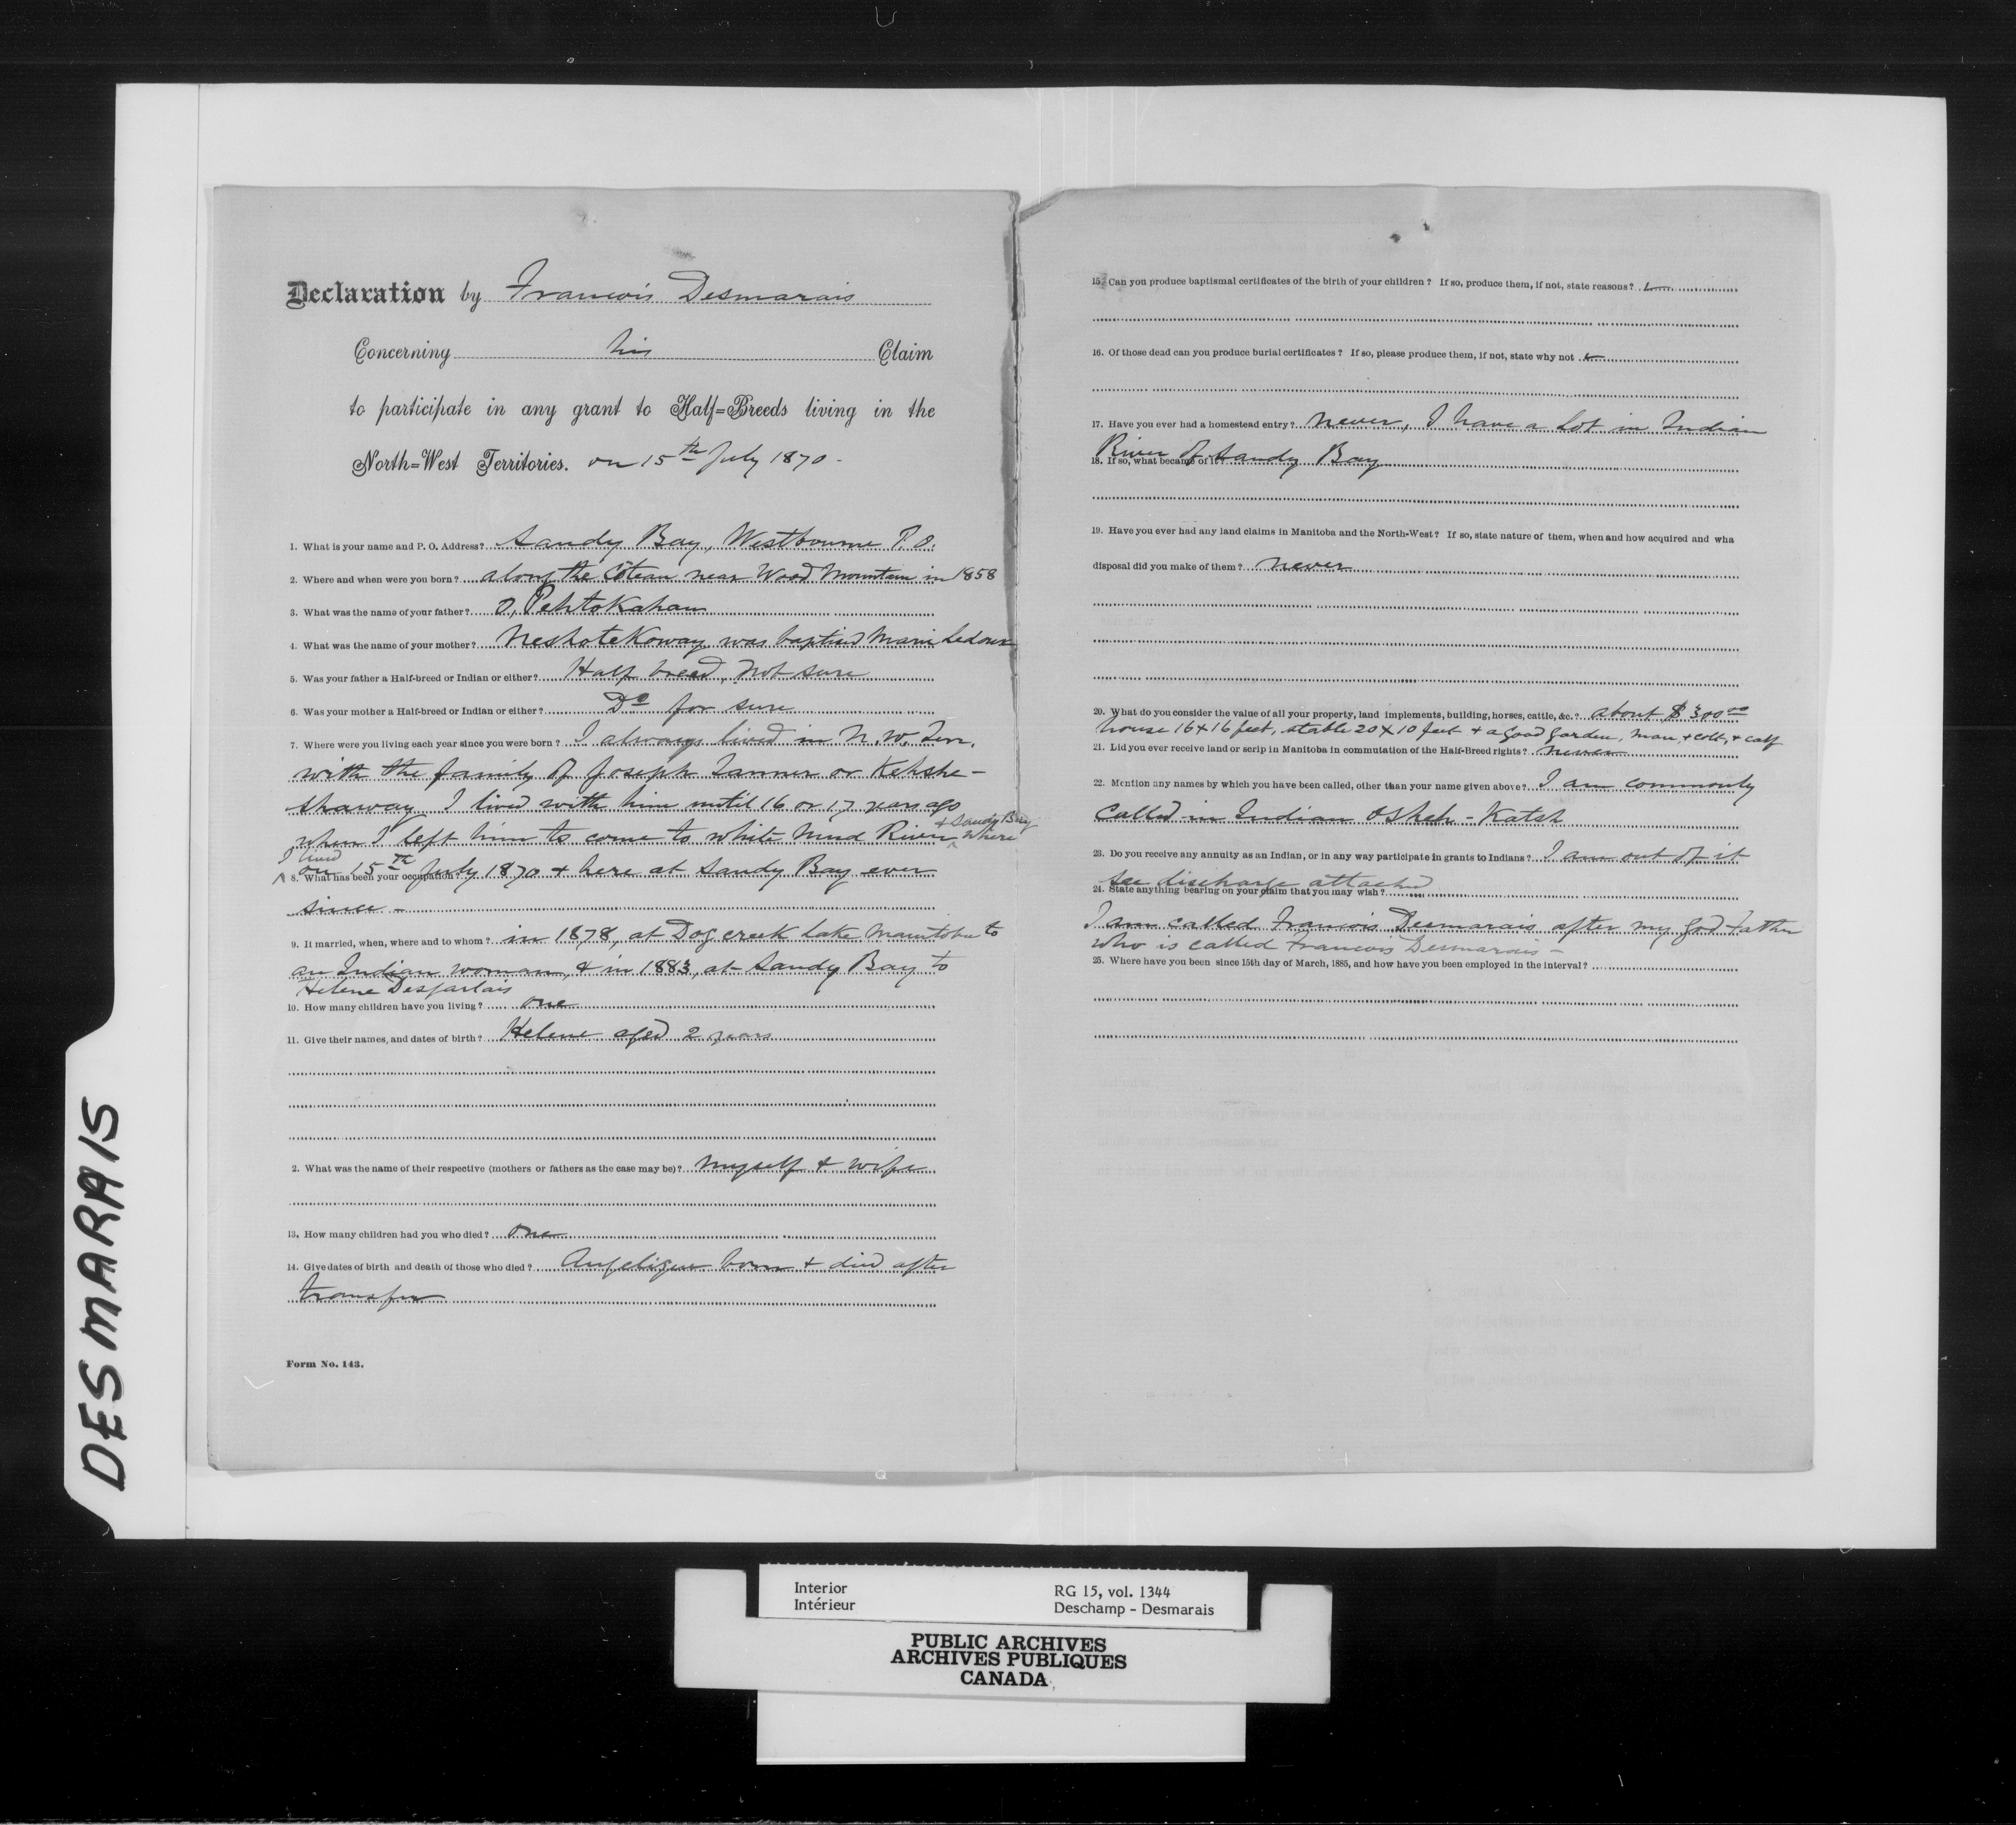 Declaration by Francois Desmarais
Concerning his Claim
to participate in any grant to Half=Breeds living in the
North=West Territories. on 15th July 1870 -
1. What is your name and P. O. Address? Sandy Bay, Westbourne P.O.
2. Where and when were you born? along the Côteau near Wood Mountain in 1858
3. What was the name of your father? O, Pehtokahan
4. What was the name of your mother? Neshotekoway was baptised Marie Ledoux
5. Was your father a Half-breed or Indian or either? Half breed, not sure
6. Was your mother a Half-breed or Indian or either? Do for sure
7. Where were you living each year since you were born? I always lived in N. W. Terr.
with the family of Joseph Tanner or Kehshe-
shaway I lived with him until 16 or 17 years ago
when I left him to come to White Mud River & Sandy Bay where
I lived
on 15th July 1870 & here at Sandy Bay ever
8. What has been your occupation?
since -
9. If married, when, where and to whom? in 1878, at Dog creek Lake Manitoba to
an Indian woman, & in 1883, at Sandy Bay to
Helene Desjarlais
10. How many children have you living? one
11. Give their names, and dates of birth? Helene aged 2 years
2. What was the name of their respective (mothers or fathers as the case may be)? myself & wife
13. How many children had you who died? One
14. Give dates of birth and death of those who died? Angelique born & died after
transfer
Form No. 143.
15. Can you produce baptismal certificates of the birth of your children? If so, produce them, if not, state reasons?
16. Of those dead can you produce burial certificates? If so, please produce them, if not, state why not
17. Have you ever had a homestead entry? never, I have a lot in Indian
River of Sandy Bay
18. If so, what became of it?
19. Have you ever had any land claims in Manitoba and the North-West? If so, state nature of them, when and how acquired and wha
disposal did you make of them? never
20. What do you consider the value of all your property, land implements, building, horses, cattle, &c.? about $300.00
house 16 x 16 feet, stable 20 x 10 feet & a good garden, mare, & colt, & calf
21. Did you ever receive land or scrip in Manitoba in commutation of the Half-Breed rights? never
22. Mention any names by which you have been called, other than your name given above? I am commonly
called in Indian Oskeh - Katsh
23. Do you receive any annuity as an Indian, or in any way participate in grants to Indians? I am out of it
see discharge attached
24. State anything bearing on your claim that you may wish?
I am called Francois Desmarais after my god father
who is called Francois Desmarais -
25. Where have you been since 15th day of March, 1885, and how have you been employed in the interval?
DESMARAIS
Interior
Intérieur
RG 15, vol. 1344
Deschamp - Desmarais
PUBLIC ARCHIVES
ARCHIVES PUBLIQUES
CANADA